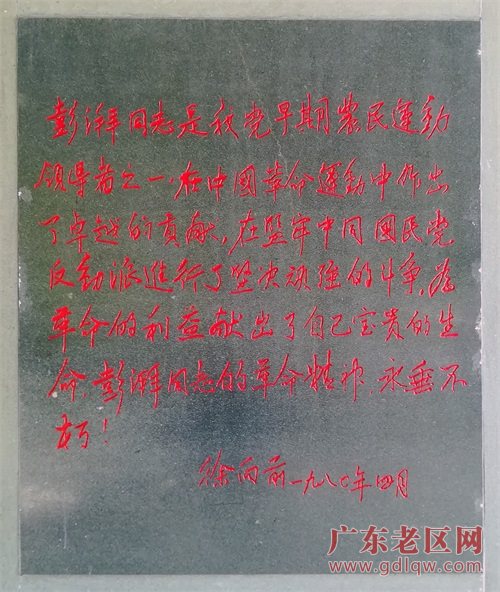 彭湃同志是我党早期農民运動
领导者之一,在中國革命运動中作出
了卓越的贡献,在坚牢中同國民党
反動派進行了坚决顽强的斗争,为
革命的利益献出了自己宝贵的生
命,彭湃同志的革命精神,永垂不
朽!
徐向前一九八〇年四月
广东老区网
www.gdlqw.com